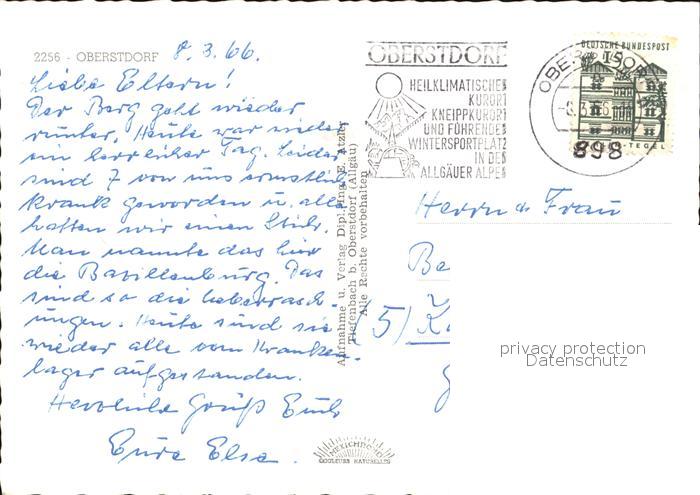 2256 - OBERSTDORF 8.3.66.
Liebe Eltern!
Der Berg geht wieder
runter. Heute war wieder
ein herrlicher Tag. Leider
sind 7 von uns ernstlich
krank geworden u. alle
hatten wir einen Stich.
Man nannte das hier
die Bazillenburg. Das
sind so die Überrasch-
ungen. Heute sind sie
wieder alle vom Kranken-
lager aufgestanden.
Herzliche Grüße Euch
Eure Elsa.
Aufnahme u. Verlag Dipl. Ing. E. Atzler
Tiefenbach b. Oberstdorf (Allgäu)
Alle Rechte vorbehalten
MEXICHROM
COULEURS NATURELLES
OBERSTDORF
HEILKLIMATISCHER
KURORT
KNEIPPKURORT
UND FÜHRENDER
WINTERSPORTPLATZ
IN DEN
ALLGÄUER ALPEN
DEUTSCHE BUNDESPOST
15
TEGEL
898
Herrn u. Frau
Be
5) K
privacy protection
Datenschutz